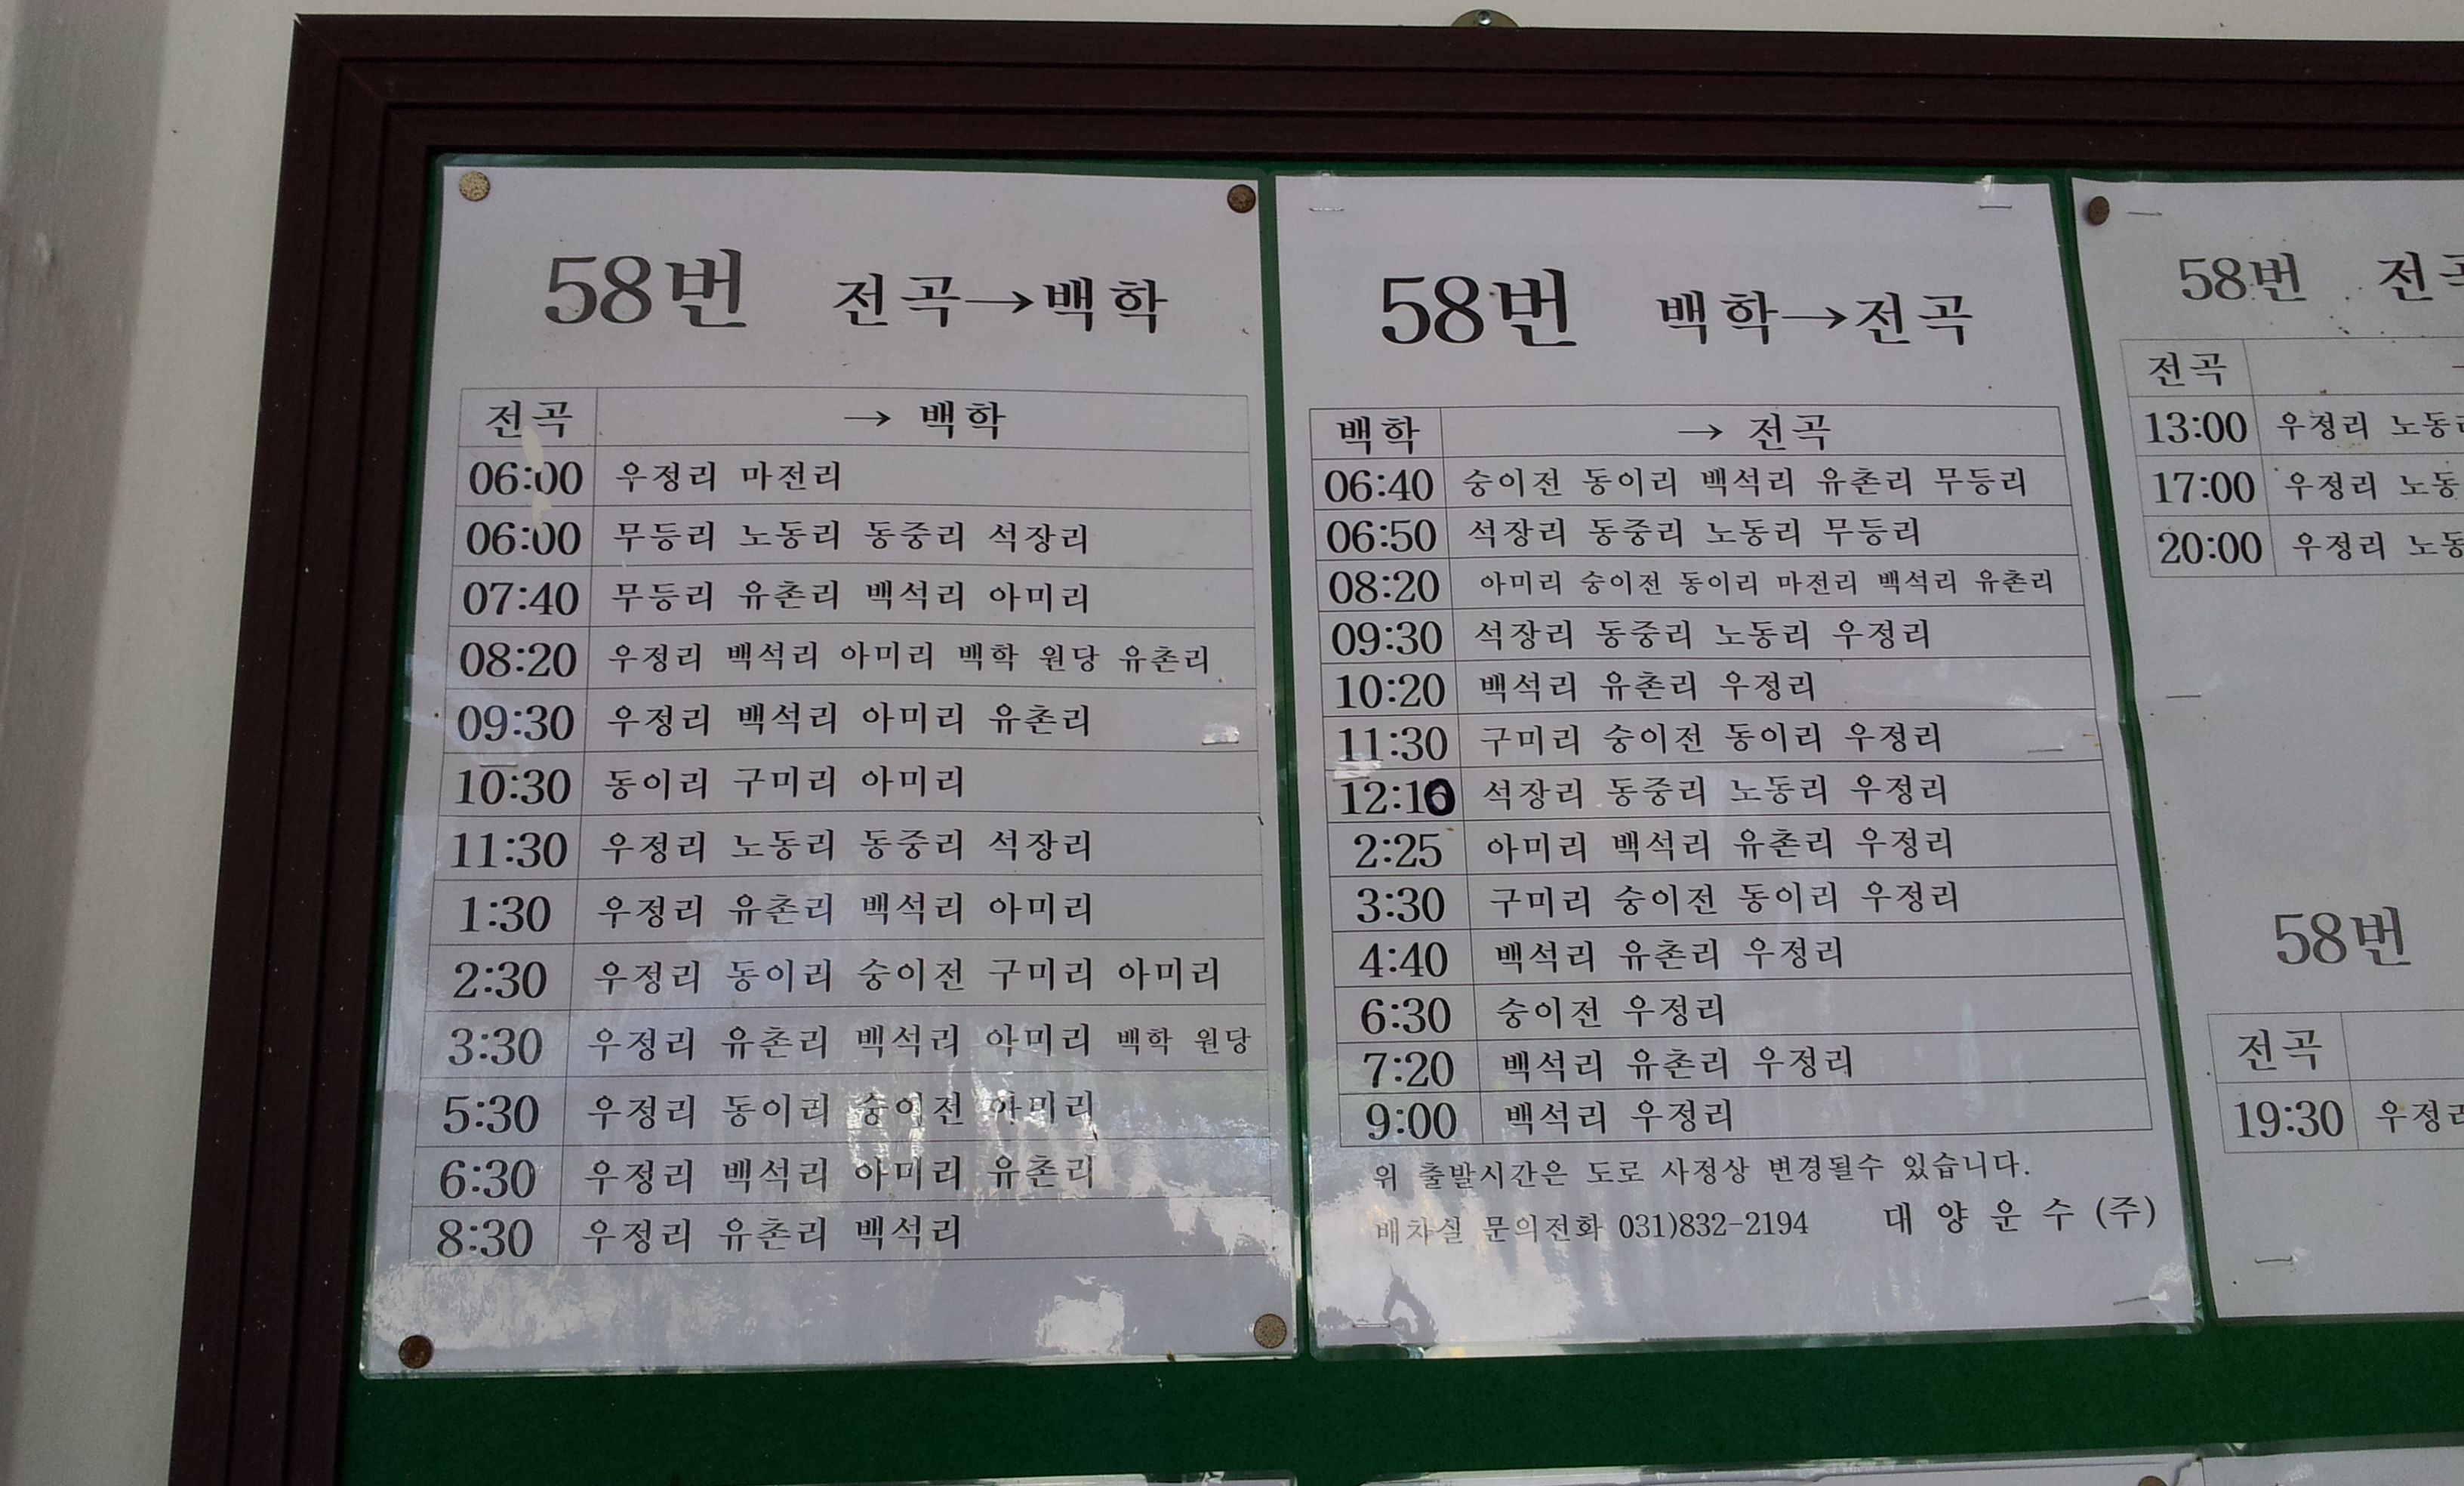 58번 전곡→백학
전곡 → 백학
06:00 우정리 마전리
06:00 무등리 노동리 동중리 석장리
07:40 무등리 유촌리 백석리 아미리
08:20 우정리 백석리 아미리 백학 원당 유촌리
09:30 우정리 백석리 아미리 유촌리
10:30 동이리 구미리 아미리
11:30 우정리 노동리 동중리 석장리
1:30 우정리 유촌리 백석리 아미리
2:30 우정리 동이리 숭이전 구미리 아미리
3:30 우정리 유촌리 백석리 아미리 백학 원당
5:30 우정리 동이리 숭이전 아미리
6:30 우정리 백석리 아미리 유촌리
8:30 우정리 유촌리 백석리
58번 백학→전곡
백학 → 전곡
06:40 숭이전 동이리 백석리 유촌리 무등리
06:50 석장리 동중리 노동리 무등리
08:20 아미리 숭이전 동이리 마전리 백석리 유촌리
09:30 석장리 동중리 노동리 우정리
10:20 백석리 유촌리 우정리
11:30 구미리 숭이전 동이리 우정리
12:10 석장리 동중리 노동리 우정리
2:25 아미리 백석리 유촌리 우정리
3:30 구미리 숭이전 동이리 우정리
4:40 백석리 유촌리 우정리
6:30 숭이전 우정리
7:20 백석리 유촌리 우정리
9:00 백석리 우정리
위 출발시간은 도로 사정상 변경될수 있습니다.
배차실 문의전화 031)832-2194 대 양 운 수 (주)
58번 전곡
전곡
13:00 우정리 노동리
17:00 우정리 노동
20:00 우정리 노동
58번
전곡
19:30 우정리